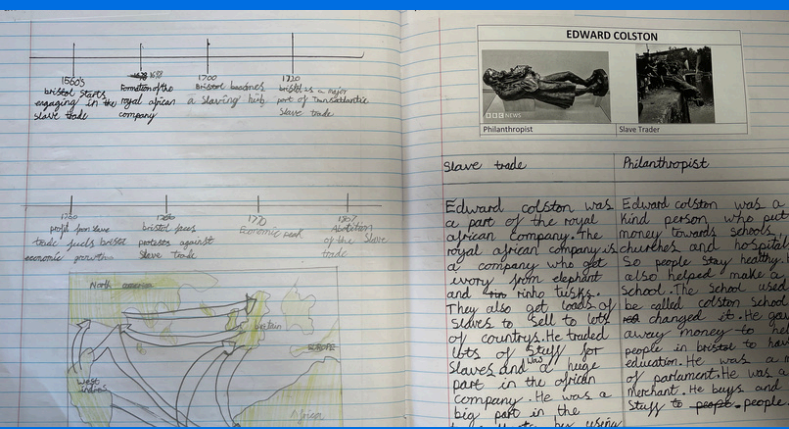 1560's
bristol starts
engaging in the
slave trade
Formation of the
royal african
company
1700
Bristol becomes
a slaving hub
1720
bristol is a major
port of Transatlantic
Slave trade
1750
profit from slave
trade fuels bristol
economic growth
bristol faces
protests against
Slave trade
1770
Economic peak
1807
Abolition
of the Slave
trade
North
Britain
West
indies
Africa
EDWARD COLSTON
BBC NEWS
Philanthropist
Slave Trader
Slave trade
Edward colston was
a part of the royal
african company. The
royal african company is
a company who get
ivory from elephant
and rinho tusks.
They also get loads of
Slaves to Sell to lots
of countrys. He traded
lots of Stuff for
Slaves and was a huge
part in the african
company. He was a
big part in the
Philanthropist
Edward colston was a
Kind person who put
money towards schools,
churches and hospital
So people Stay healthy.
also helped make a
School. The School used
be called colston School
changed it. He
away money to
people in bristol to
education. He was a
of parlament. He was a
merchant. He buys and
Stuff to people.